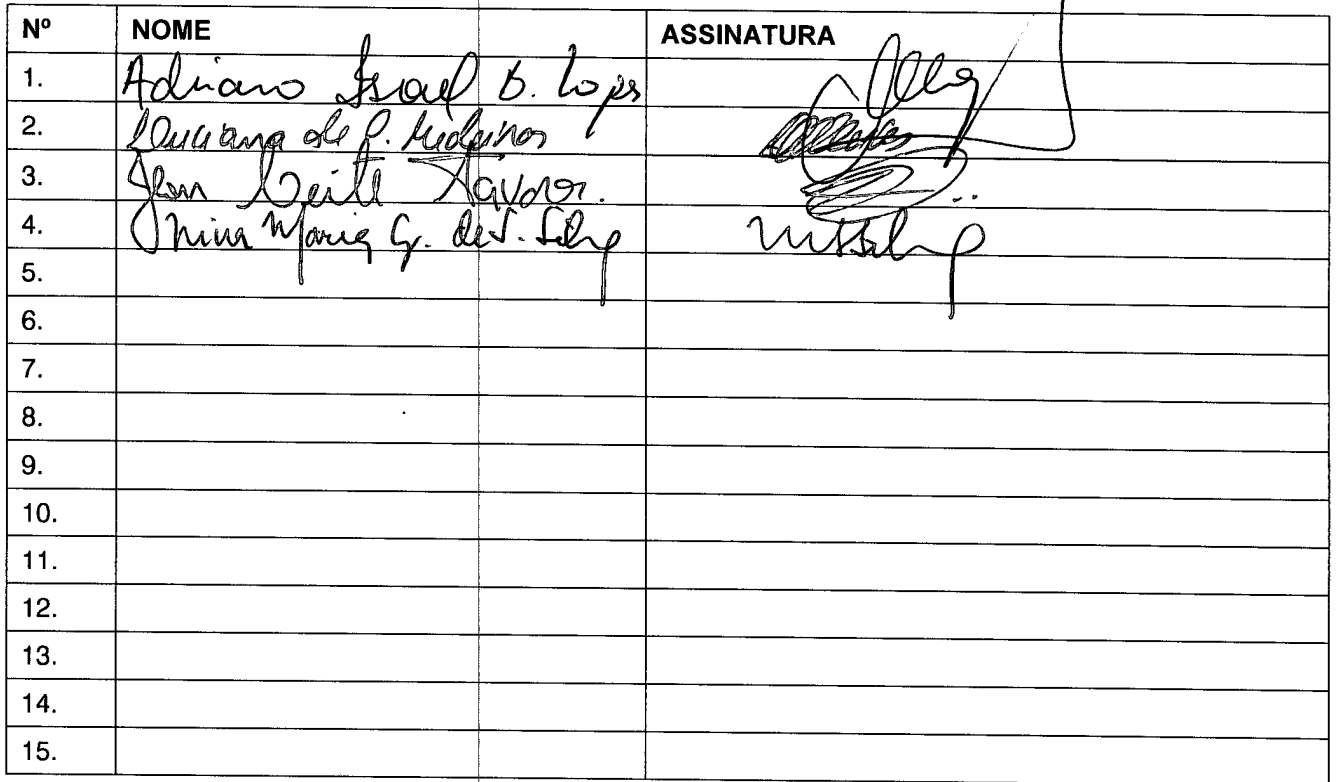 Nº NOME ASSINATURA
1. Adriano Israel D. Lopes
2. Luciana de P. Medeiros
3. Jean Leite Tavora.
4. Maria G. de S. Silva
5.
6.
7.
8.
9.
10.
11.
12.
13.
14.
15.